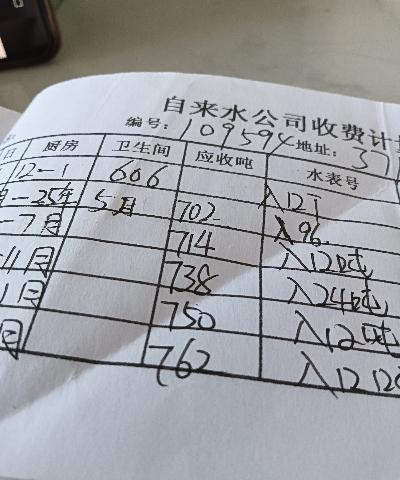 自来水公司收费计
编号: 109594 地址: 37
厨房 卫生间 应收吨 水表号
12-1 606 入12T
-25年 5月 702 入96
-7月 714 入12吨
-11月 738 入24吨
1月 750 入12吨
月 762 入12 12